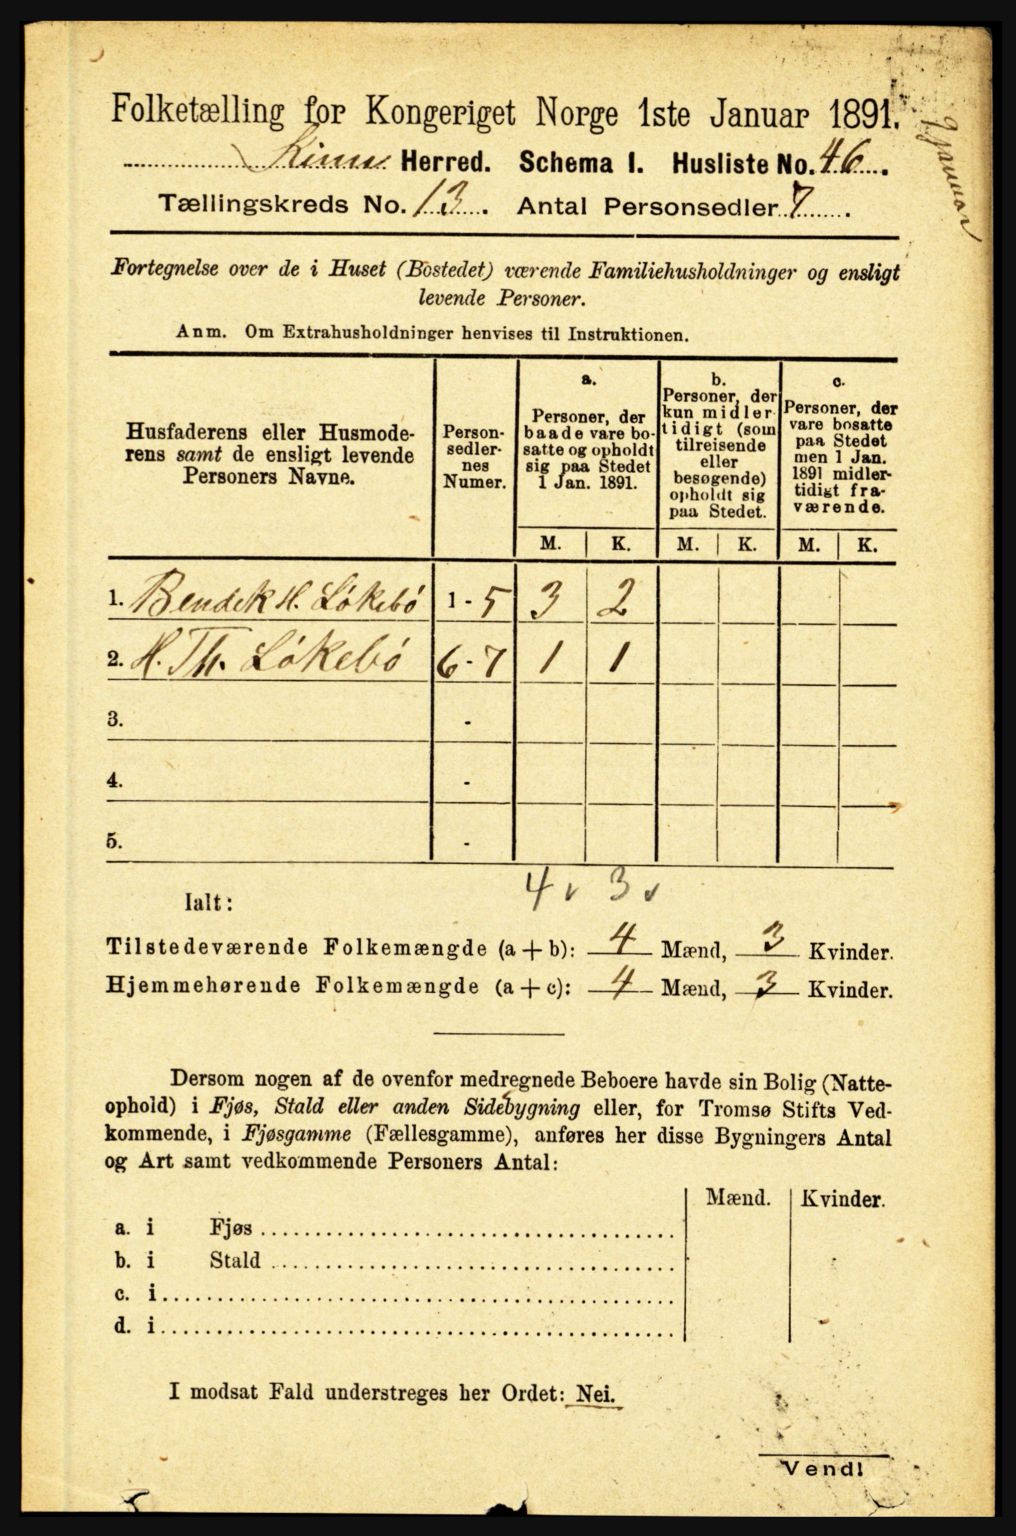 Folketælling for Kongeriget Norge 1ste Januar 1891.
Kinn Herred. Schema I. Husliste No. 46.
Tællingskreds No. 13. Antal Personsedler 7.
Fortegnelse over de i Huset (Bostedet) værende Familiehusholdninger og ensligt
levende Personer.
Anm. Om Extrahusholdninger henvises til Instruktionen.
Husfaderens eller Husmode-
rens samt de ensligt levende
Personers Navne.
Person-
sedler-
nes
Numer.
a.
Personer, der
baade vare bo-
satte og opholdt
sig paa Stedet
1 Jan. 1891.
b.
Personer, der
kun midler
tidigt (som
tilreisende
eller
besøgende)
opholdt sig
paa Stedet.
c.
Personer, der
vare bosatte
paa Stedet
men 1 Jan.
1891 midler-
tidigt fra-
værende.
M. K. M. K. M. K.
1. Bendek H. Løkebø 1 - 5 3 2
2. H. Th. Løkebø 6 - 7 1 1
3. -
4. -
5. -
4 3
Ialt:
Tilstedeværende Folkemængde (a + b): 4 Mænd, 3 Kvinder.
Hjemmehørende Folkemængde (a + c): 4 Mænd, 3 Kvinder.
Dersom nogen af de ovenfor medregnede Beboere havde sin Bolig (Natte-
ophold) i Fjøs, Stald eller anden Sidebygning eller, for Tromsø Stifts Ved-
kommende, i Fjøsgamme (Fællesgamme), anføres her disse Bygningers Antal
og Art samt vedkommende Personers Antal:
Mænd. Kvinder.
a. i Fjøs
b. i Stald
c. i
d. i
I modsat Fald understreges her Ordet: Nei.
Vend!